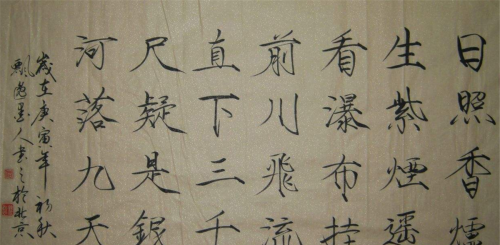 日照香爐
生紫煙遥
看瀑布挂
前川飛流
直下三千
尺疑是銀
河落九天
歲在庚寅年初秋
飘逸墨人書之於北京